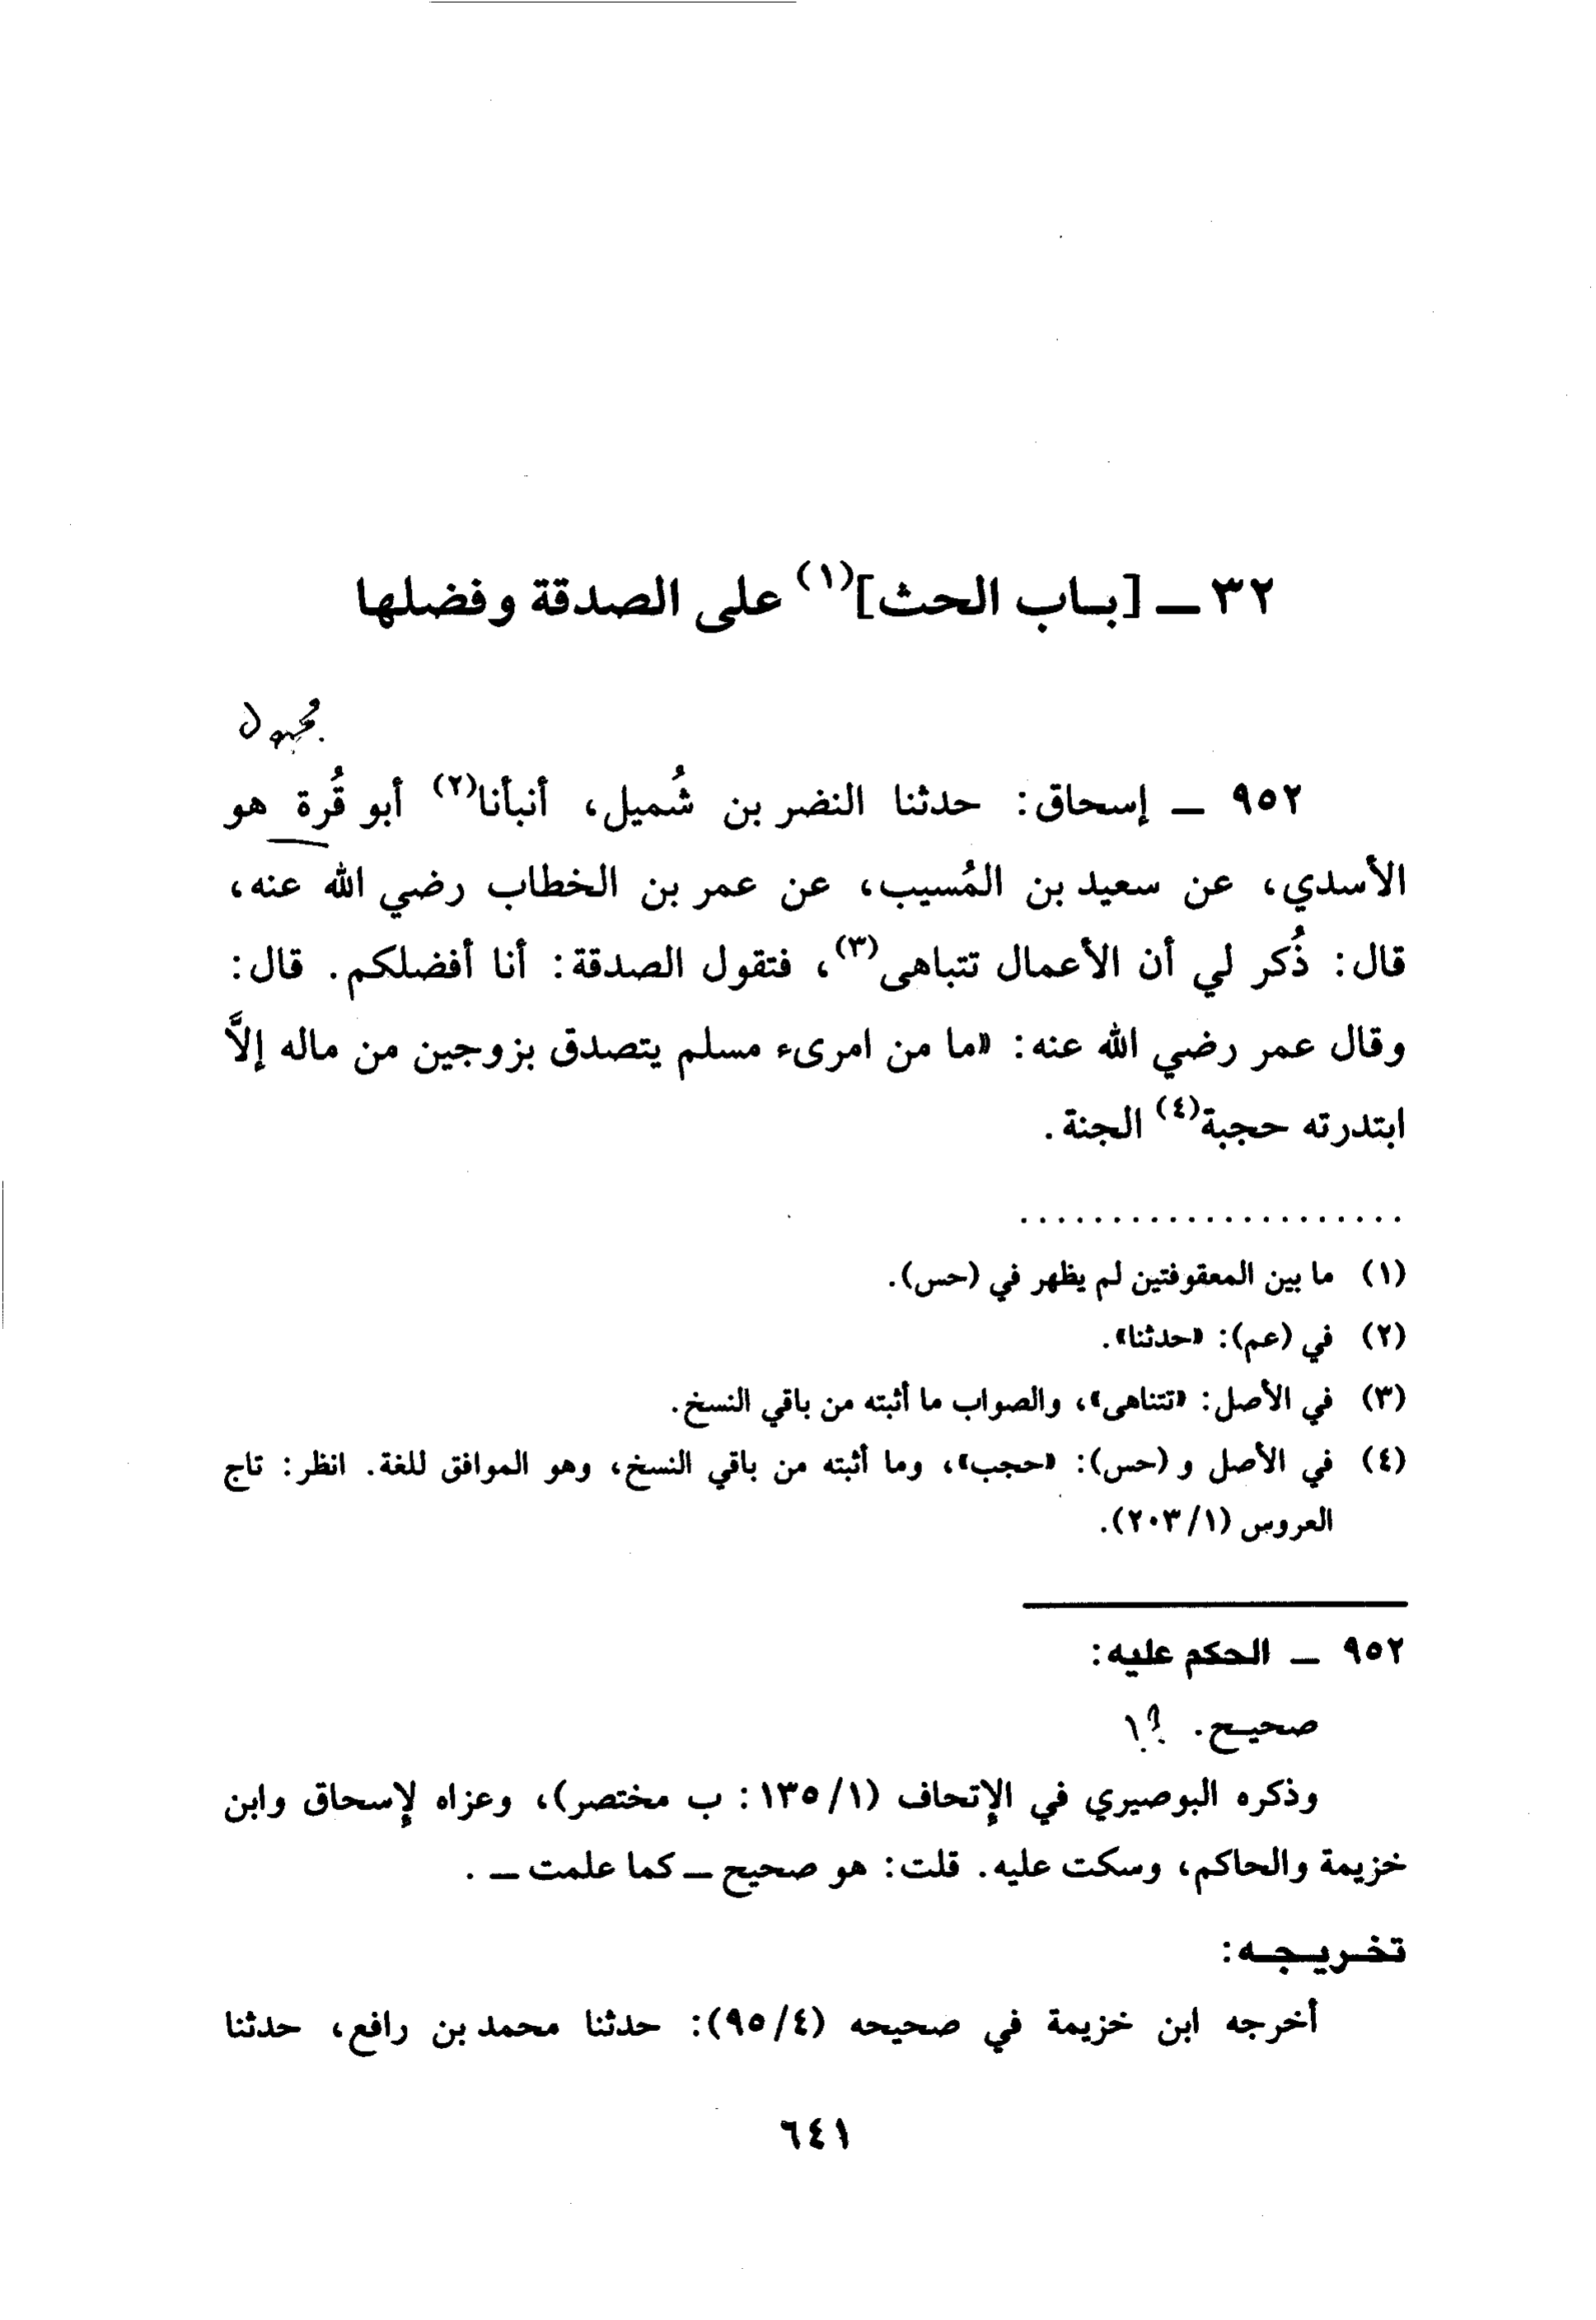 ٣٢ ـ [باب الحث](١) على الصدقة وفضلها
مجهول
٩٥٢ ـ إسحاق: حدثنا النضر بن شُميل، أنبأنا(٢) أبو قُرة هو
الأسدي، عن سعيد بن المُسيب، عن عمر بن الخطاب رضي الله عنه،
قال: ذُكر لي أن الأعمال تتباهى(٣)، فتقول الصدقة: أنا أفضلكم. قال:
وقال عمر رضي الله عنه: «ما من امرىء مسلم يتصدق بزوجين من ماله إلاَّ
ابتدرته حجبة(٤) الجنة.
.....................
(١) ما بين المعقوفتين لم يظهر في (حس).
(٢) في (عم): «حدثنا».
(٣) في الأصل: «تتناهى»، والصواب ما أثبته من باقي النسخ.
(٤) في الأصل و (حس): «حجب»، وما أثبته من باقي النسخ، وهو الموافق للغة. انظر: تاج
العروس (٢٠٣/١).
٩٥٢ ـ الحكم عليه:
صحيح. ؟!
وذكره البوصيري في الإتحاف (١٣٥/١: ب مختصر)، وعزاه لإسحاق وابن
خزيمة والحاكم، وسكت عليه. قلت: هو صحيح ـ كما علمت ـ .
تخريجه:
أخرجه ابن خزيمة في صحيحه (٩٥/٤): حدثنا محمد بن رافع، حدثنا
٦٤١